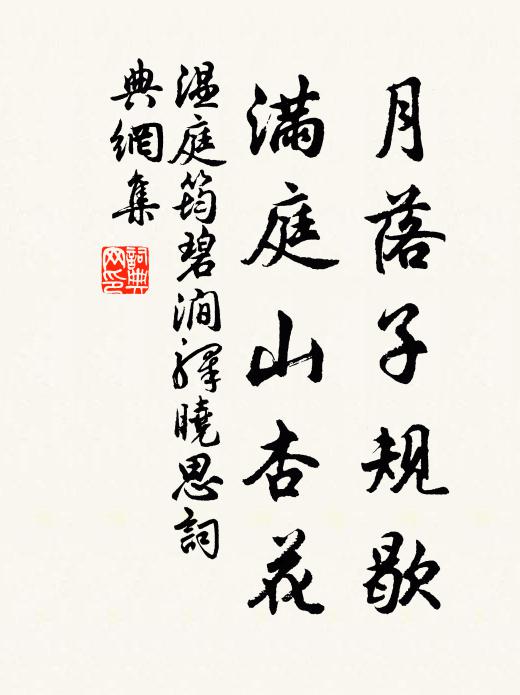 月落子規歇
滿庭山杏花
溫庭筠碧澗驛曉思詞
典網集
詞典
网印